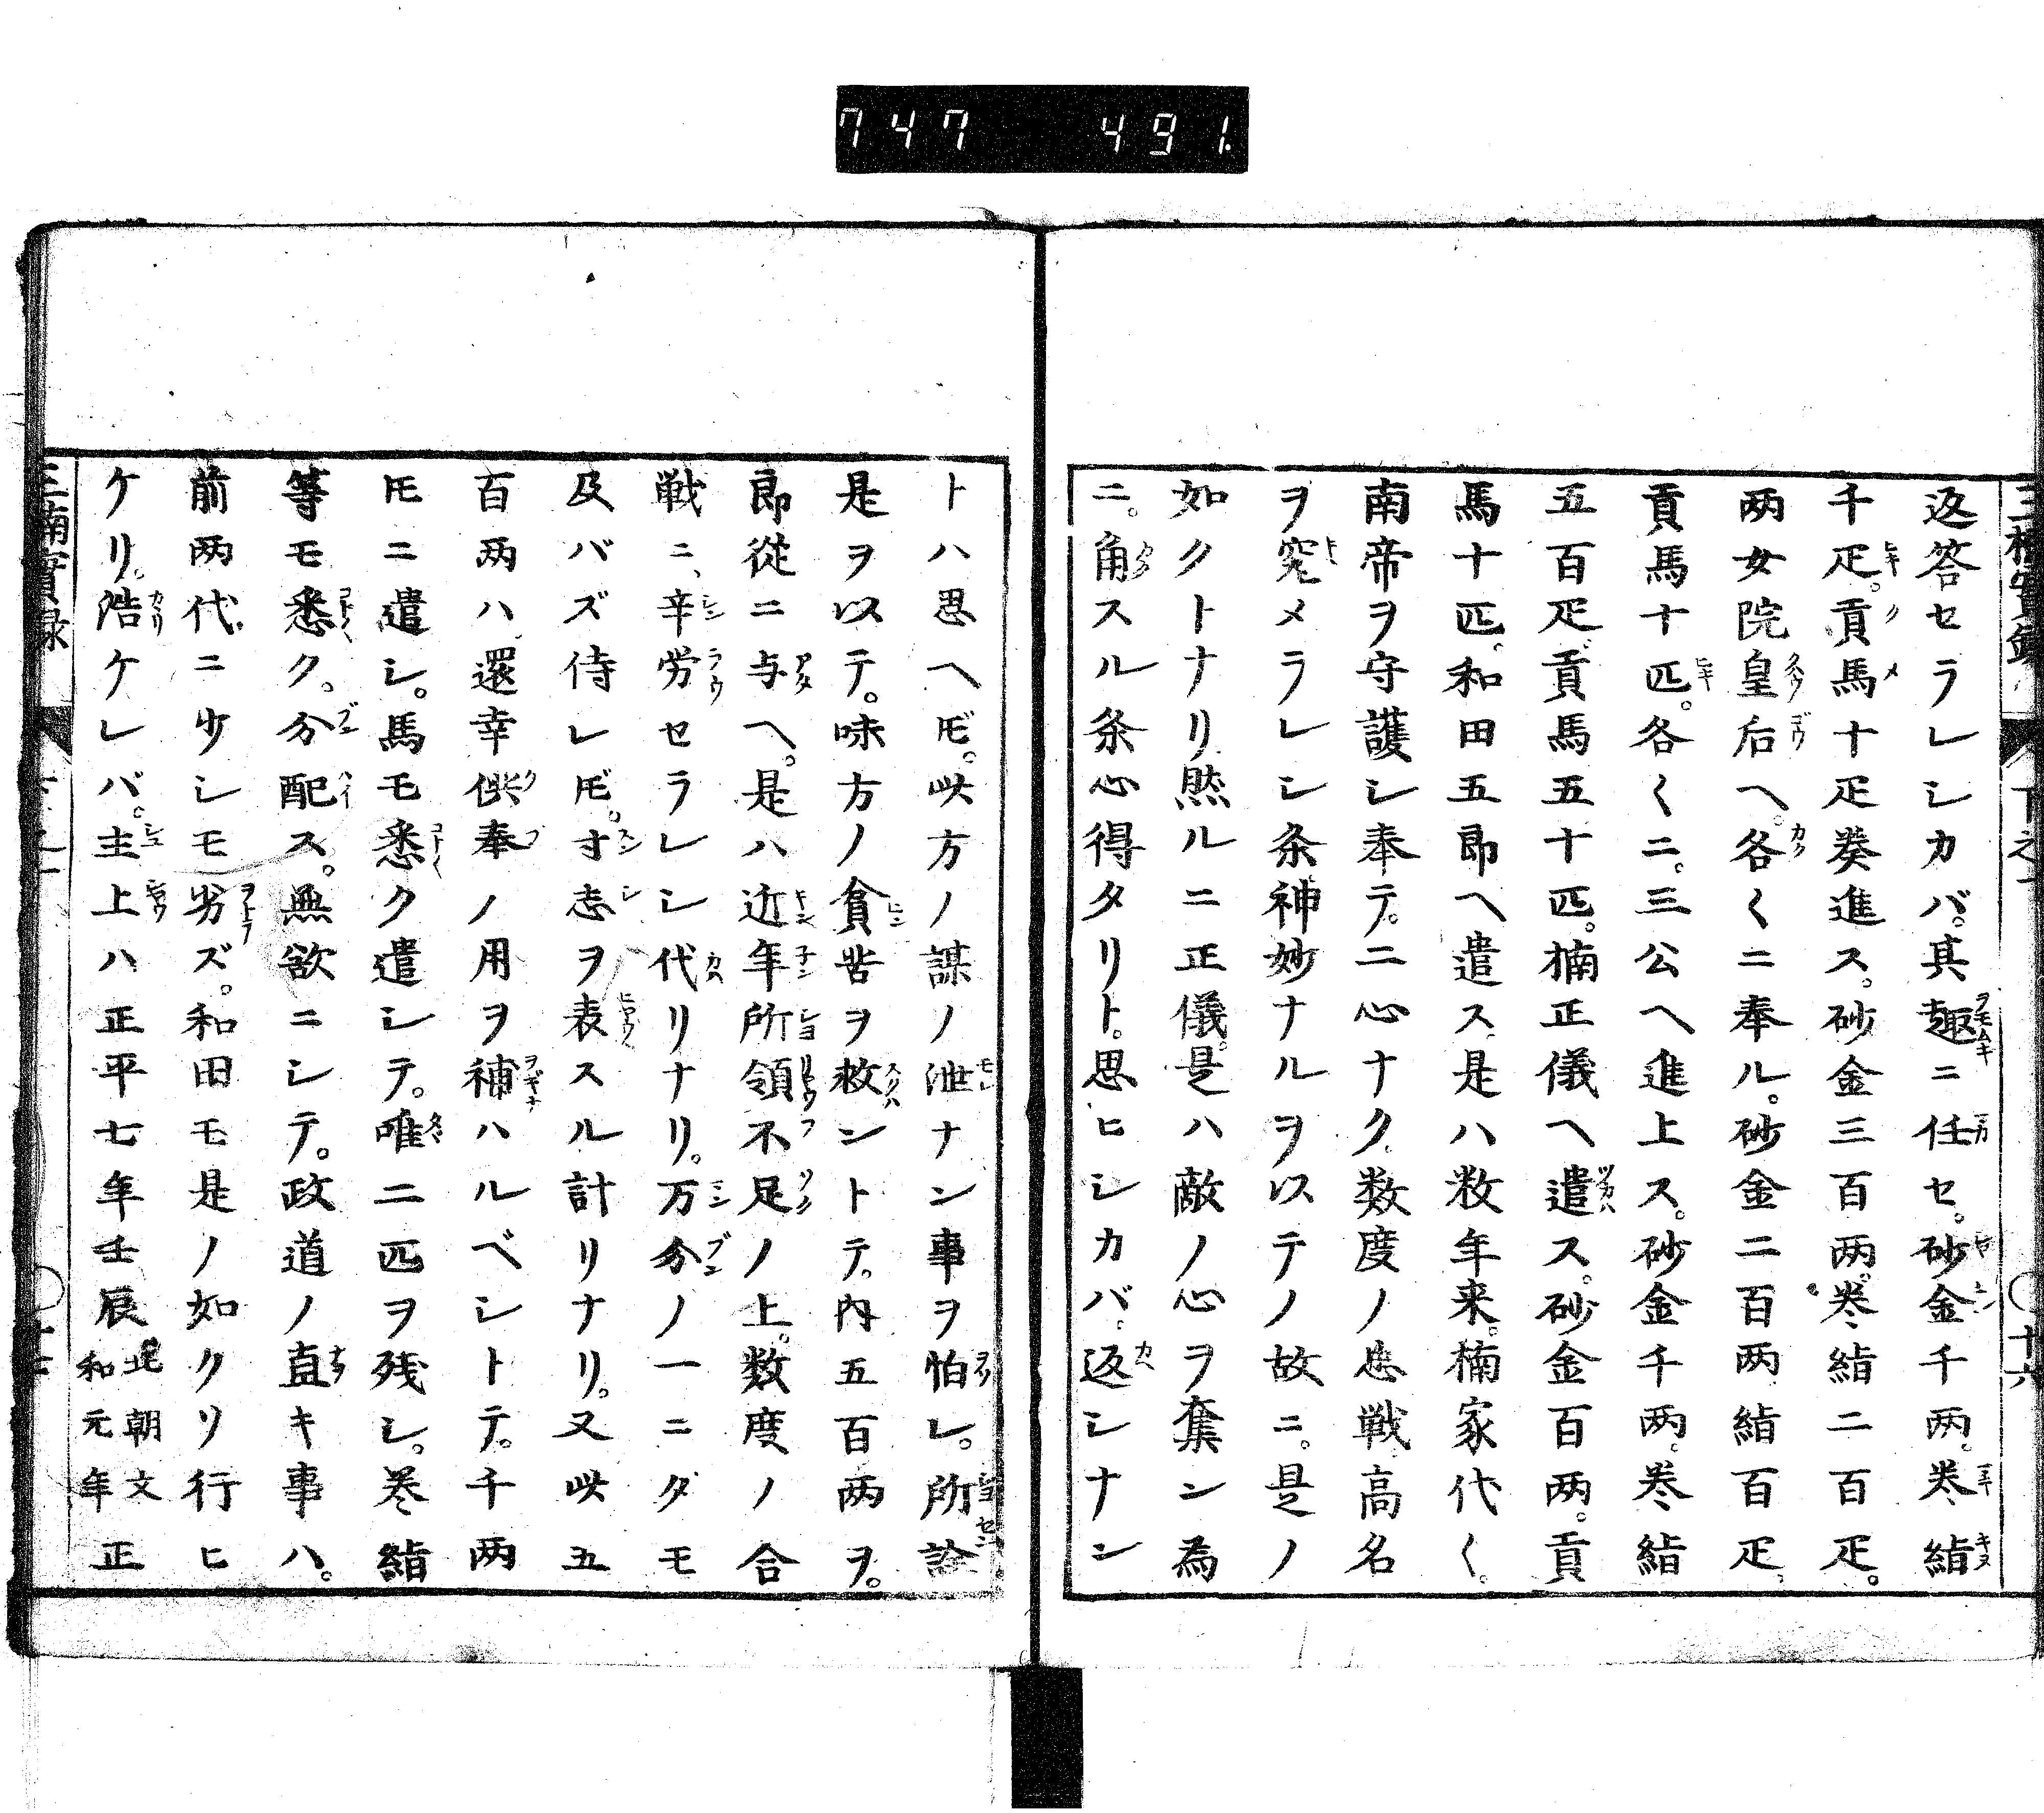 747 491.
返答セラレシカバ。其趣ニ任セ。砂金千两。巻絹
千疋。貢馬十疋奏進ス。砂金三百两。巻絹二百疋。
两女院皇后ヘ。各〱ニ奉ル。砂金二百两絹百疋。
貢馬十匹。各〱ニ。三公ヘ進上ス。砂金千两。巻絹
五百疋。貢馬五十匹。楠正儀ヘ遣ス。砂金百两。貢
馬十匹。和田五郎ヘ遣ス。是ハ数年来。楠家代〱。
南帝ヲ守護シ奉テ。二心ナク。数度ノ忠戦。高名
ヲ究メラレシ条神妙ナルヲ以テノ故ニ。是ノ
如クトナリ。然ルニ正儀。是ハ敵ノ心ヲ奪ン為
ニ。角スル条心得タリト。思ヒシカバ。返シナン
トハ思ヘ𪜈。此方ノ謀ノ泄ナン事ヲ怕レ。所詮
是ヲ以テ。味方ノ貧苦ヲ救ントテ。内五百两ヲ。
郎従ニ与ヘ。是ハ近年所領不足ノ上。数度ノ合
戦ニ、辛労セラレシ代リナリ。万分ノ一ニダモ
及バズ侍レ𪜈。寸志ヲ表スル計リナリ。又此五
百两ハ。還幸供奉ノ用ヲ補ハルベシトテ。千两
𪜈ニ遣シ。馬モ悉ク遣シテ。唯二匹ヲ残シ。巻絹
等モ悉ク。分配ス。無欲ニシテ。政道ノ直キ事ハ。
前两代ニ少シモ劣ズ。和田モ是ノ如クリ行ヒ
ケリ。浩ケレバ。主上ハ正平七年壬辰北朝文和元年正
三楠實録 下之 十六
三楠實録